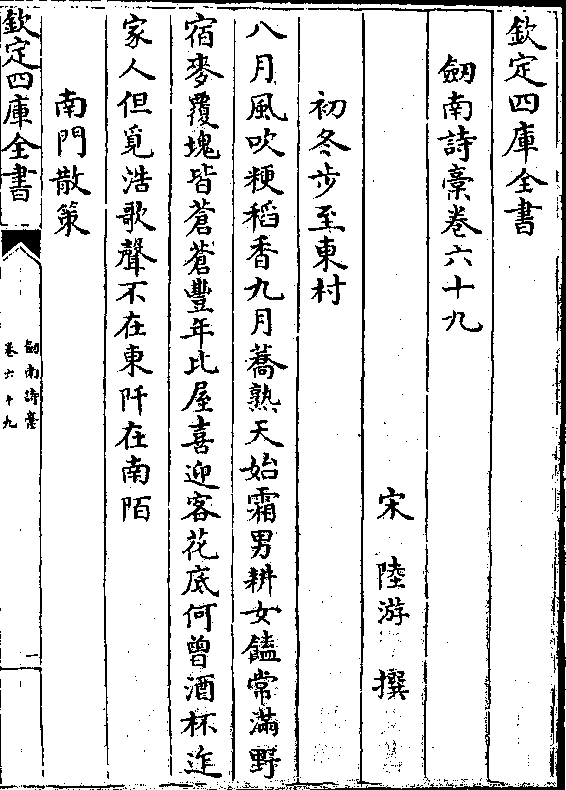 欽定四庫全書
劒南詩槀卷六十九
宋 陸游 撰
初冬步至東村
八月風吹粳稻香九月蕎熟天始霜男耕女饁常滿野
宿麥覆塊皆蒼蒼豐年比屋喜迎客花底何曾酒杯迮
家人但覓浩歌聲不在東阡在南陌
南門散策
欽定四庫全書
劒南詩槀
卷六十九
一